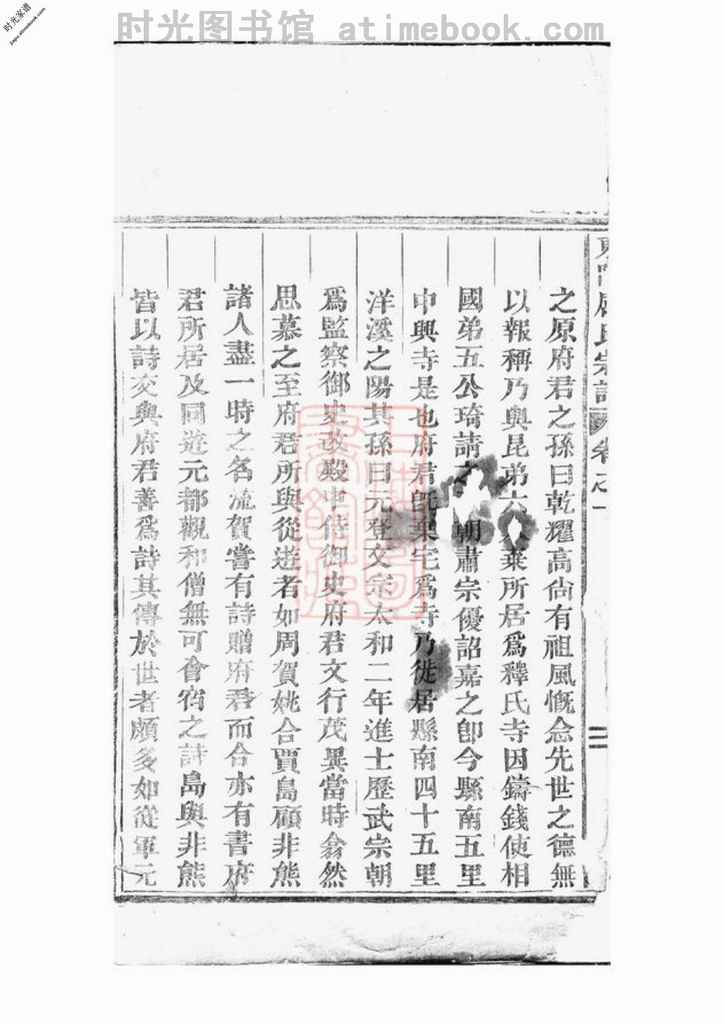 时光图书馆 atimebook.com
时光家谱
jiapu.atimebook.com
氏宗譜 卷之一
二
之原府君之孫曰乾耀高尙有祖風慨念先世之德無
以報稱乃與昆弟六 棄所居爲釋氏寺因鑄錢使相
國弟五公琦請 朝肅宗優詔嘉之卽今縣南五里
中興寺是也府君旣棄宅爲寺乃徙居縣南四十五里
洋溪之陽其孫曰元登文宗太和二年進士歷武宗朝
爲監察御史改殿中侍御史府君文行茂異當時翕然
思慕之至府君所與從遊者如周賀姚合賈島顧非熊
諸人盡一時之名流賀嘗有詩贈府君而合亦有書府
君所居及同遊元都觀和僧無可會宿之詩島與非熊
皆以詩交與府君善爲詩其傳於世者頗多如從軍元